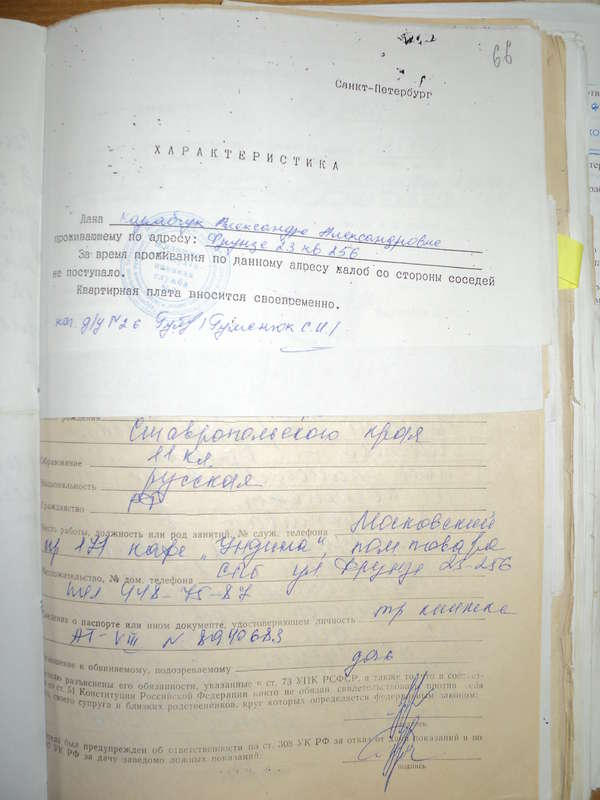 66
Санкт-Петербург
ХАРАКТЕРИСТИКА
Дана Карабчук Александре Александровне
проживающему по адресу: Фрунзе 23 кв 256
За время проживания по данному адресу жалоб со стороны соседей
не поступало.
Квартирная плата вносится своевременно.
нач. д/у №26 /Гуменюк С.И/
рождения
Ставропольского края
Образование 11 кл,
национальность русская
Гражданство РФ
место работы, должность или род занятий, № служ. телефона Московский
пр 171 кафе „Ундина", пом повара
местожительство, № дом. телефона СПб ул Фрунзе 23-256
тел 448-75-87
Сведения о паспорте или ином документе, удостоверяющем личность тр книжка
АТ-VIII № 8940683
отношение к обвиняемому, подозреваемому дочь
разъяснены его обязанности, указанные в ст. 73 УПК РСФСР, а также то, что в соответ-
ст. 51 Конституции Российской Федерации никто не обязан свидетельствовать против себя
своего супруга и близких родственников, круг которых определяется федеральным законом:
подпись
был предупрежден об ответственности по ст. 308 УК РФ за отказ от дачи показаний и по
УК РФ за дачу заведомо ложных показаний.
подпись